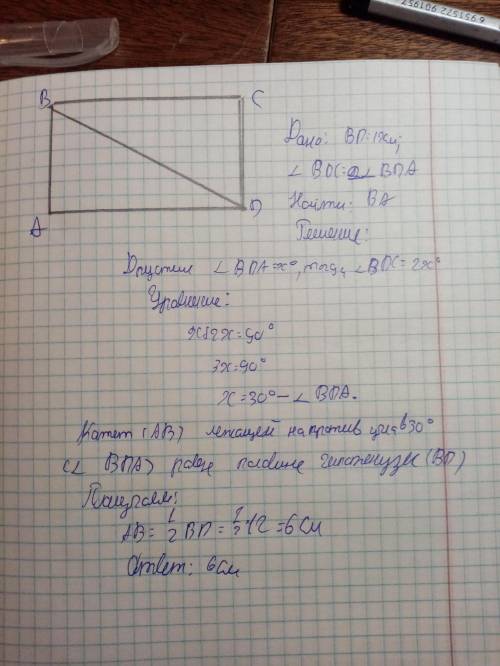 6915577 256106
B C
A D
Дано: BD=12см;
∠BDC=2∠BDA
Найти: BA
Решение:
Допустим ∠BDA=x°, тогда ∠BDC=2x°
Уравнение:
x+2x=90°
3x=90°
x=30°-∠BDA.
Катет (AB) лежащей напротив угла в 30°
(∠BDA) равен половине гипотенузы (BD)
Получаем:
AB=1/2 BD=1/2·12=6см
Ответ: 6см